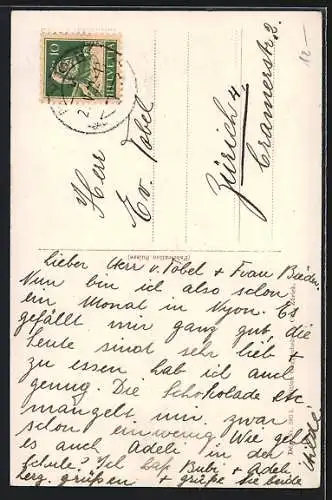 10
HELVETIA
12-
Herr
Ev. Tobel
Zürich 4.
Cramerstr. 2.
(Fabrication Suisse)
Lieber Herr v. Tobel + Frau
Nun bin ich also schon
ein Monat in Nyon. Es
gefällt mir ganz gut, die
Leute sind sehr lieb +
zu essen hab ich auch
genug. Die Schokolade etc
mangelt mir zwar
schon ein wenig. Wie geht
es auch Adeli in der
Schule? Ich lass Bubi + Adeli
herz. grüßen + grüße Sie beide